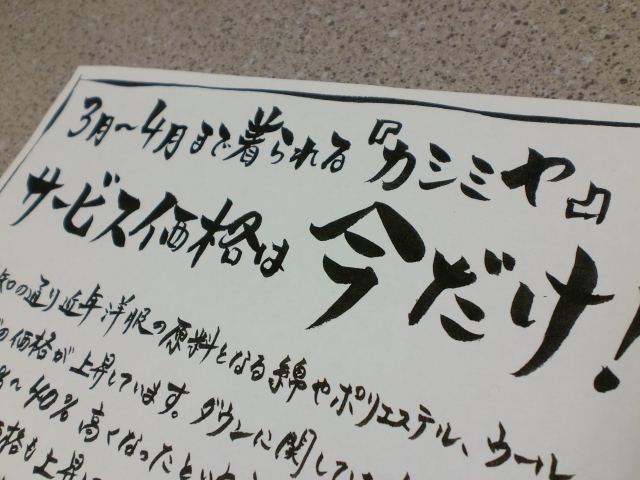 3月～4月まで着られる『カシミヤ』
サービス価格は今だけ！
知の通り近年洋服の原料となる綿やポリエステル、ウール
の価格が上昇しています。ダウンに関して
～40％高くなったといわ
価格も上昇